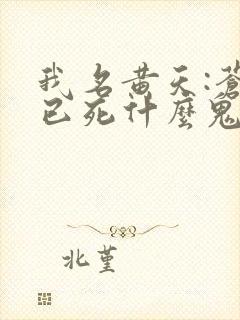 我名黄天:蒼
已死什麼鬼
北堇